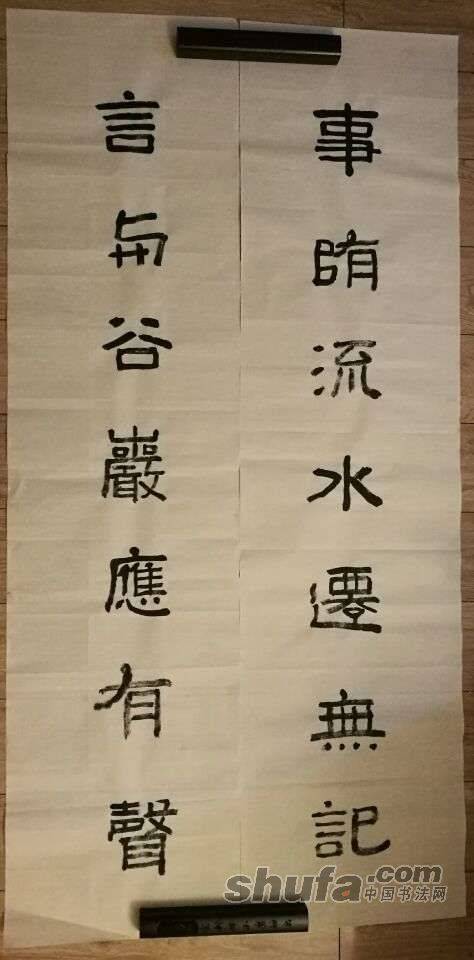 事陏流水遷無記
言与谷巖應有聲
shufa.com
中国书法网